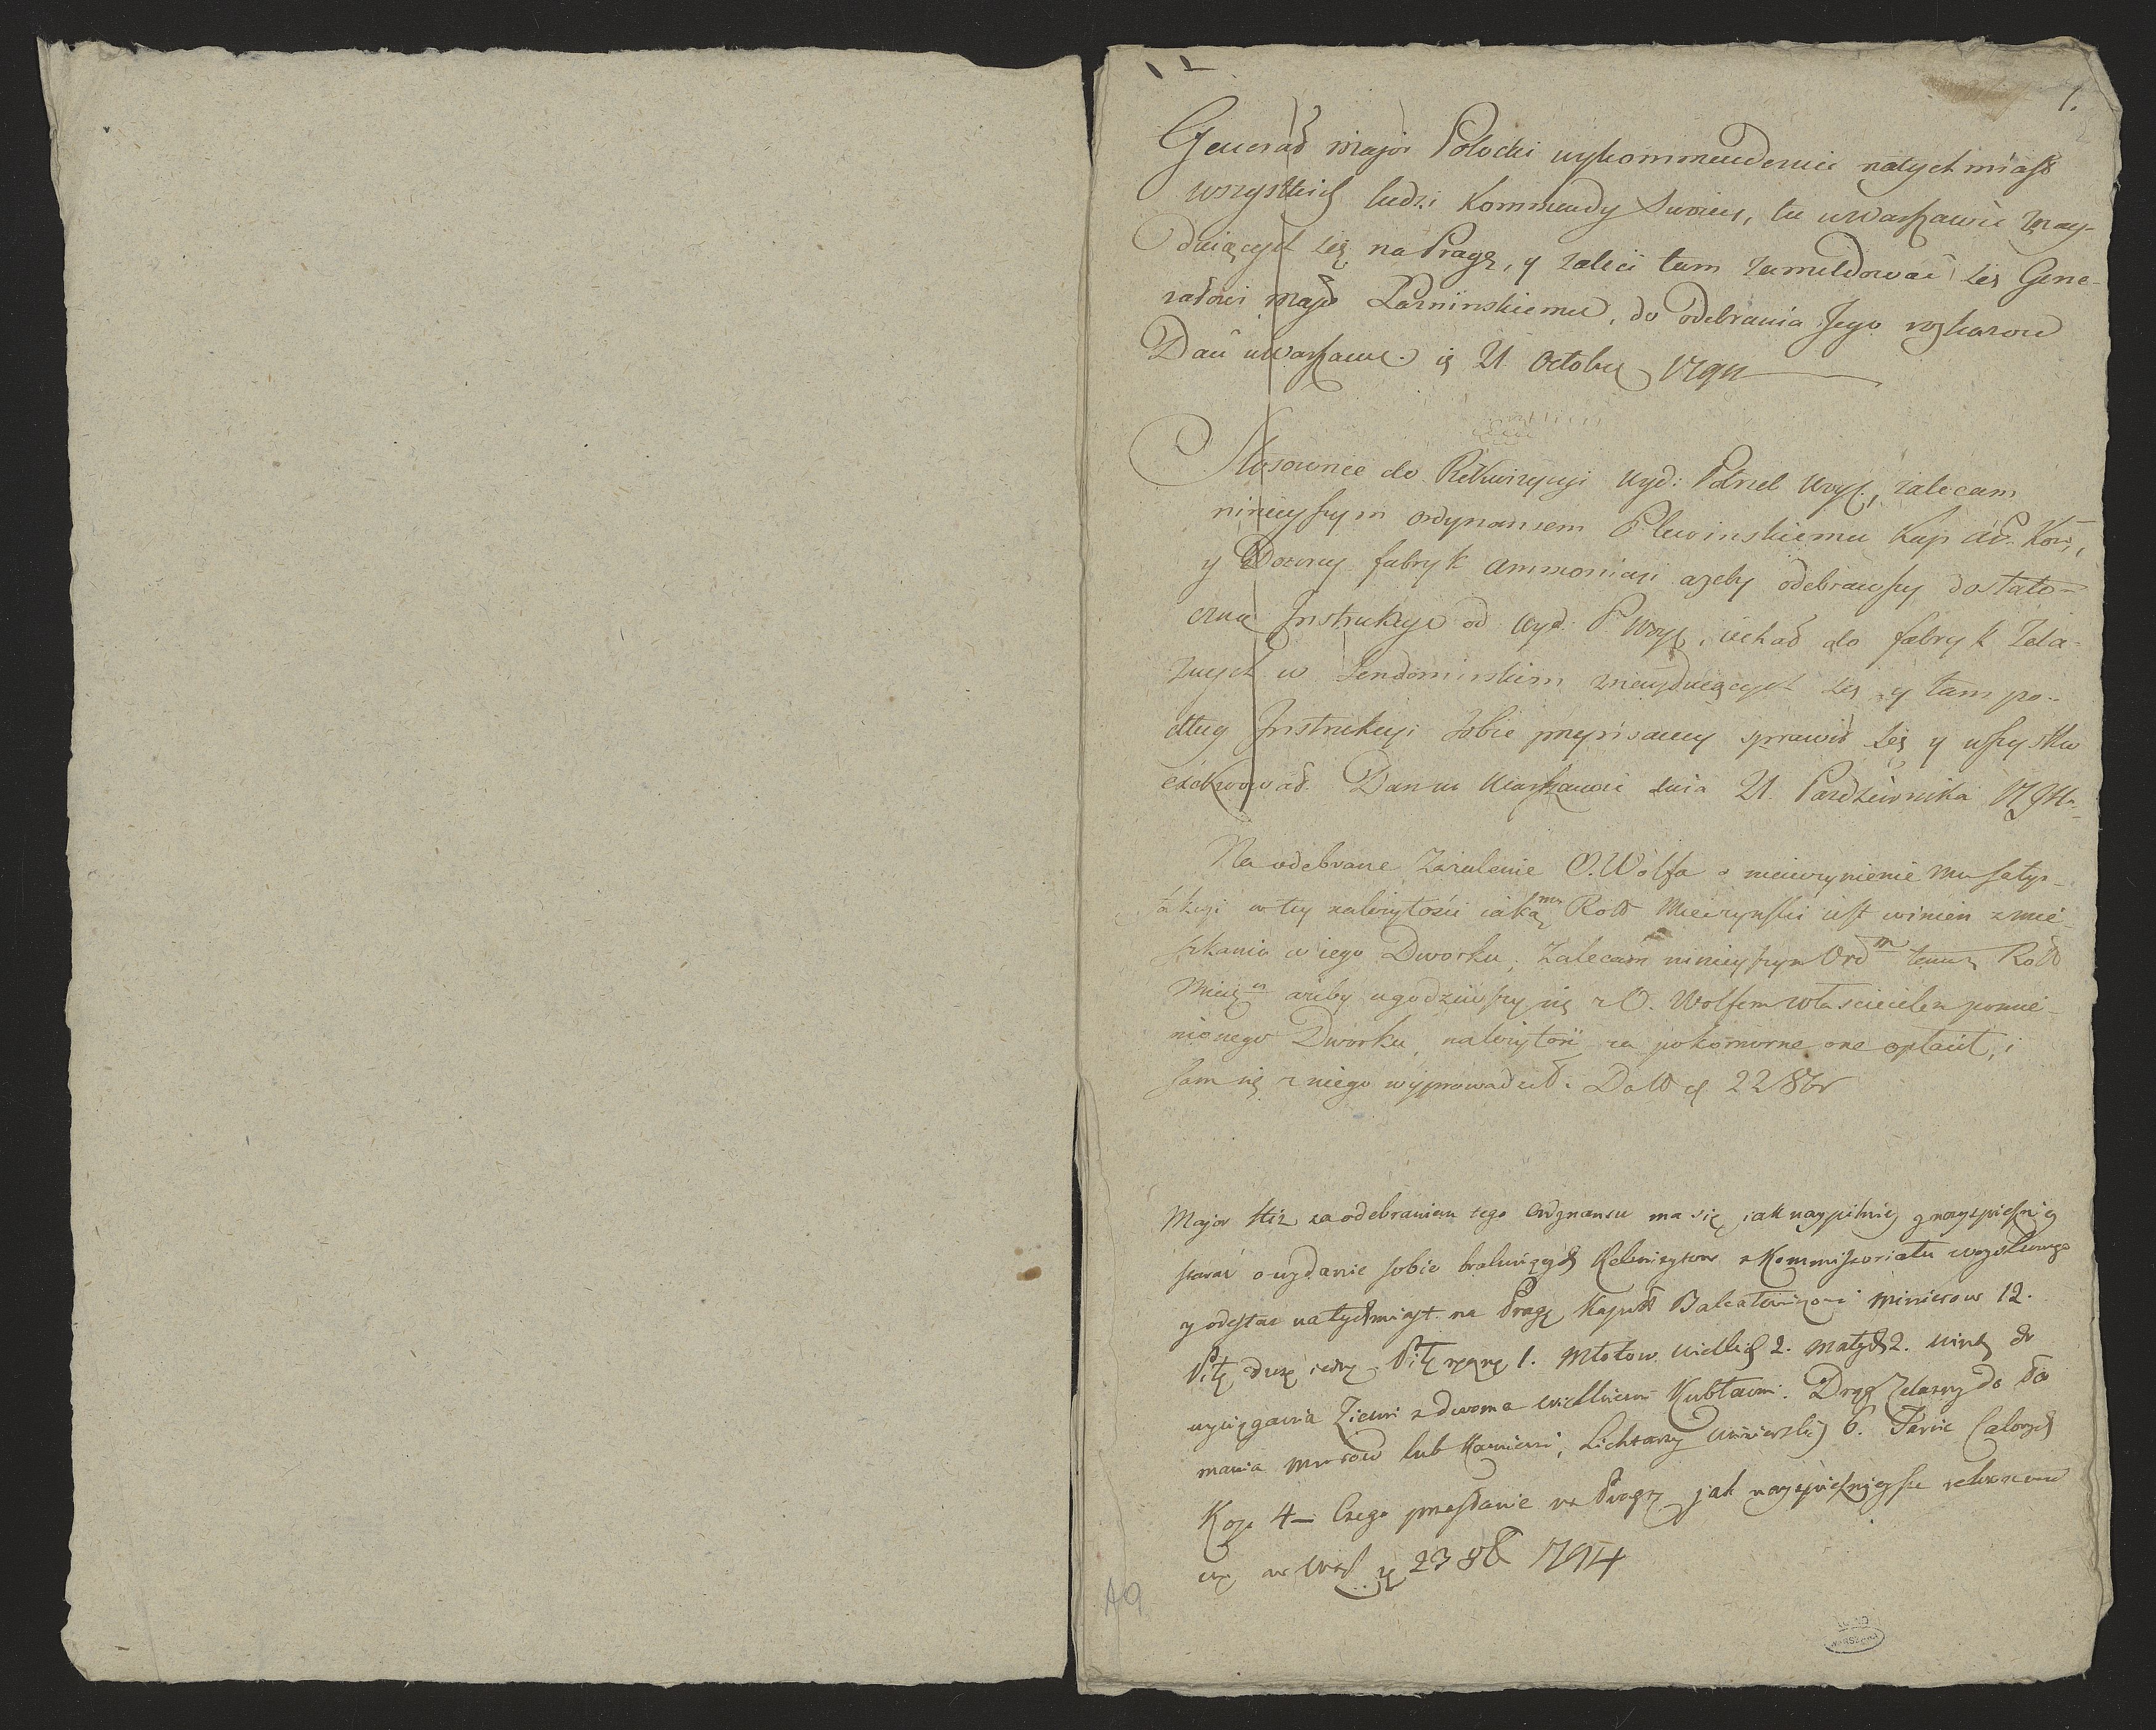 1.
Generał major Potocki wykommenderuie natychmiast
wszystkich ludzi Kommendy Swoiey, tu w Warszawie znay-
duiących się na Pragę, y zaleci tam zameldować się Gene-
rałowi Majo do odebrania Jego roskazow
Dań w Warszawie d 21 Octobra 1794
Stosownie do Rekwizycyi Wyd: Potrzeb Woys., zalecam
ninieyszym ordynansem Plewinskiemu Kap Art. Kor.,
y Dozorcy fabryk ammonicyi azeby odebrawszy dostate-
czną Instrukcye od Wyd. P. Woys, iechał do fabryk Zela-
znych w Sendomirskim znayduiących się y tam po-
dług Instrukcyi sobie przepisaney sprawił się y wszystko
exekwował. Dan w Warszawie dnia 21 Pazdziernika 1794.
Na odebrane Zażalenie O. Wolfa o nieuczynienie mu satys-
fakcyi w tey należytości iaką Rott Mieczynski iest winien z mie-
szkania w iego Dworku, Zalecam ninieyszym Ord m temuż Rott
Miecz ażeby ugodziwszy się z O. Wolfem właścicielem pomie-
nionego Dworku, należytość za pokomorne one opłacił, i
sam się z niego wyprowadził. Datt d 22 8br
Major za odebraniem tego Ordynansu ma się jak naypilniey y nayspieszniey
starać o wydanie sobie brakuiących Rekwizytow z Kommissoriatu woyskowego
y odesłac natychmiast na Pragę Kapitt Minierow 12.
Piłę dużę iednę Piłę ręczną 1. Młotow wielkich 2. małych 2. Windę do
wyciągania Ziemi z dwoma wielkiemi Kubłami. Drąg Zelazny do ła
mania murow lub Kamieni, Lichtarzy minierskich 6. Calowych
Kop 4 – Czego przesłanie na Pragę jak nayspiesznieysze rekomenduie
się w Wars d 23 8br 1794
A9